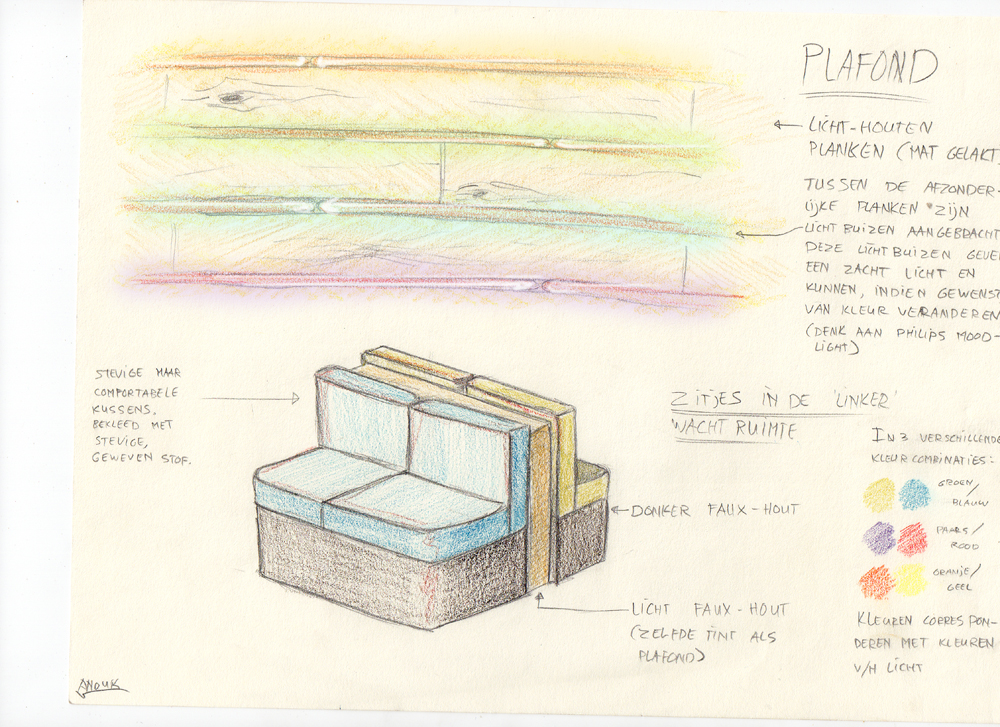 PLAFOND
LICHT-HOUTEN
PLANKEN (MAT GELAKT
TUSSEN DE AFZONDER-
LIJKE PLANKEN ZIJN
LICHTBUIZEN AANGEBRACHT
DEZE LICHTBUIZEN GEVE
EEN ZACHT LICHT EN
KUNNEN, INDIEN GEWENST
VAN KLEUR VERANDEREN
(DENK AAN PHILIPS MOOD-
LIGHT)
STEVIGE MAAR
COMFORTABELE
KUSSENS.
BEKLEED MET
STEVIGE,
GEWEVEN STOF.
ZITJES IN DE 'LINKER'
WACHTRUIMTE
IN 3 VERSCHILLENDE
KLEURCOMBINATIES:
GROEN/
BLAUW
PAARS/
ROOD
ORANJE/
GEEL
KLEUREN CORRESPON-
DEREN MET KLEUREN
V/H LICHT
DONKER FAUX-HOUT
LICHT FAUX-HOUT
(ZELFDE TINT ALS
PLAFOND)
ANOUK